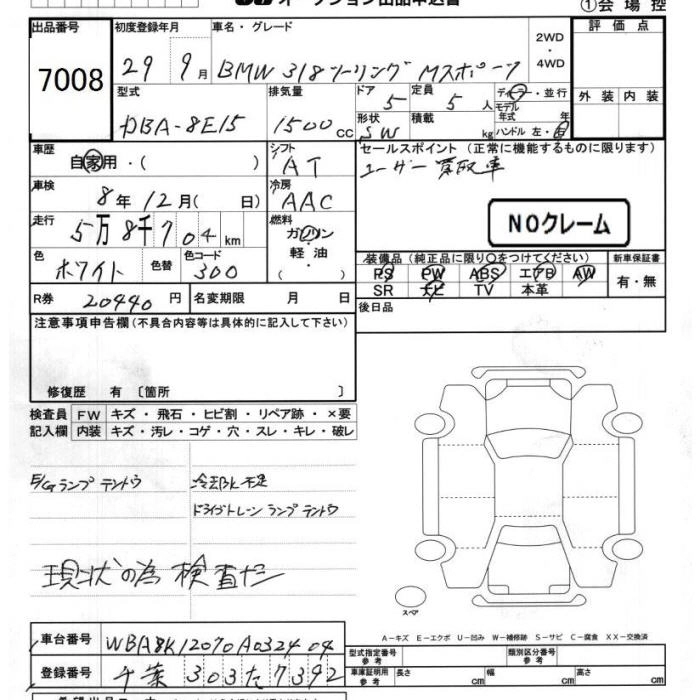 オークション出品申込書
①会場控
出品番号
7008
初度登録年月
29 9月
車名・グレード
BMW 318ツーリング Mスポーツ
2WD
・
4WD
評価点
外装 内装
型式
DBA-8E15
排気量
1500 CC
ドア
5
定員
5人
形状
SW
積載
kg
ディーラー・並行
モデル
年式 年
ハンドル 左・右
車歴
自家用・( )
シフト
AT
セールスポイント (正常に機能するものに限ります)
ユーザー買取車
NOクレーム
車検
8年12月( 日)
冷房
AAC
走行
5万8千704km
燃料
ガソリン
軽油
・( )
色
ホワイト
色替
色コード
300
装備品(純正品に限り○をつけてください)
PS PW ABS エアB AW
SR ナビ TV 本革
新車保証書
有・無
R券 20440円
名変期限 月 日
後日品
注意事項申告欄(不具合内容等は具体的に記入して下さい)
修復歴 有〔箇所 〕
検査員 FW キズ・飛石・ヒビ割・リペア跡・×要
記入欄 内装 キズ・汚レ・コゲ・穴・スレ・キレ・破レ
E/Gランプ テントウ
冷却水不足
ドライブトレーン ランプ テントウ
現状の為 検査だ
スペア
A-キズ E-エクボ U-凹み W-補修跡 S-サビ C-腐食 XX-交換済
車台番号 WBA8K12070A032404
登録番号 千葉 303 た 7392
型式指定番号
参考
類別区分番号
参考
車庫証明用
参考
長さ cm 幅 cm 高さ cm